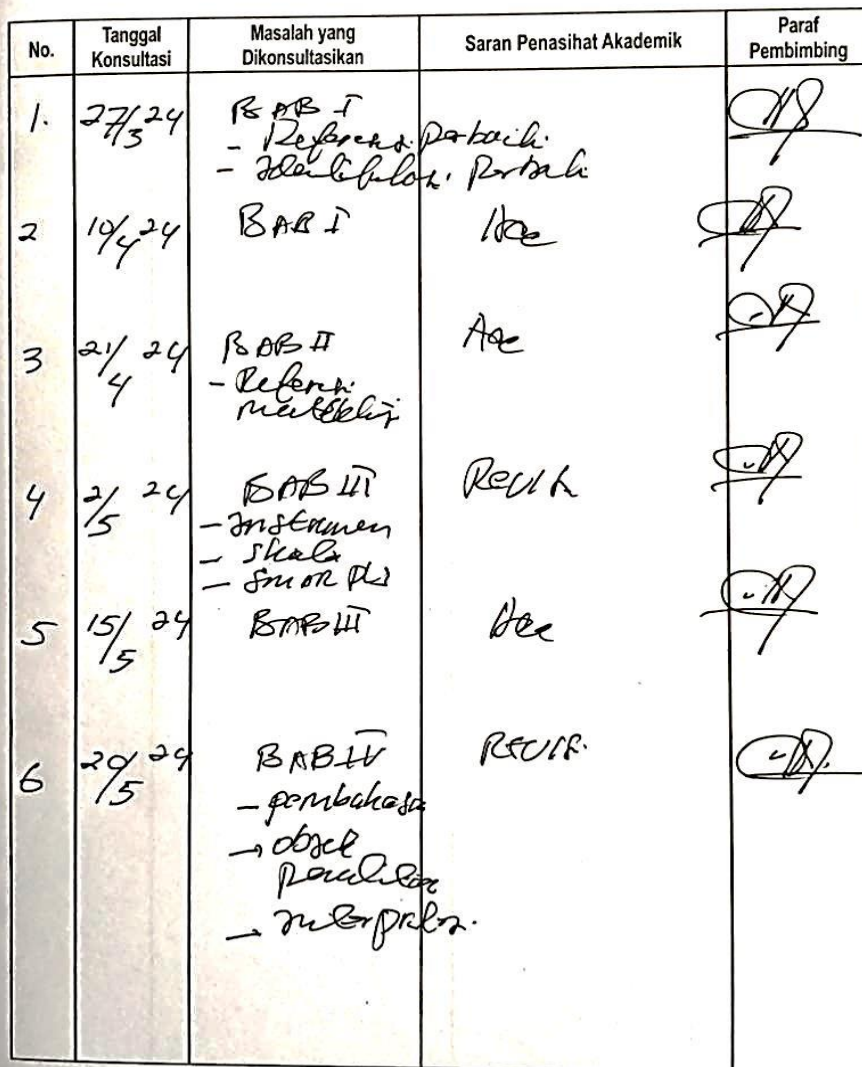 No. Tanggal Konsultasi Masalah yang Dikonsultasikan Saran Penasihat Akademik Paraf Pembimbing
1. 27/3 24 BAB I
- Referensi perbaiki
- Identifikasi perbaiki
2 10/4 24 BAB I Acc
3 21/4 24 BAB II Acc
- Referensi
4 2/5 24 BAB III Revisi
- Instrumen
- Skala
- Smart Pls
5 15/5 24 BAB III Acc
6 20/5 24 BAB IV Revisi
- pembahasa
→ objek
penelitian
→